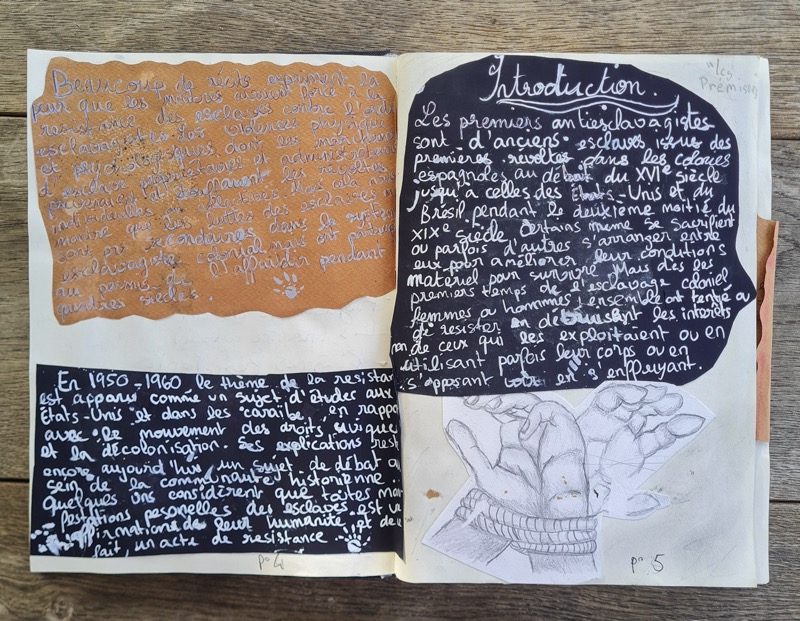 Beaucoup de récits expriment la
peur que les maîtres avaient face à la
resistance des esclaves contre l'ordre
esclavagiste des violences physiques
et psychologiques dont les
d'esclave propriétaire et administrateur
prevenaient et étouffaient les revoltes
individuelles ou collectives. Mais cela nous
montre que les luttes des esclaves n'
sont pas secondaires dans le système
esclavagiste colonial mais ont
au permis de l'affaiblir pendant
quatres siècles.
En 1950-1960 le thème de la resistan
est apparus comme un sujet d'études aux
États-Unis et dans les caraïbe, en rappo
avec le mouvement des droits civique
et la décolonisation. Ses explications rest
encore aujourd'hui un sujet de débat au
sein de la communauté historienne.
Quelques uns considèrent que toutes man
festations pesonelles des esclaves est
firmations de leur humanité et de ce
fait, un acte de resistance
p° 4
"les
Prémisses
Introduction.
Les premiers antiesclavagistes
sont d'anciens esclaves issus des
premières revoltes dans les colonies
espagnoles au début du XVIe siècle
jusqu'à celles des États-Unis et du
Brésil pendant le deuxième moitié du
XIXe siècle. Certains même se sacrifient
ou parfois d'autres s'arranger entre
eux pour améliorer leur conditions
matériel pour survivre. Mais dès les
premiers temps de l'esclavage coloniel
femmes ou hommes ensemble ont tenté
de resister en détruisant les interets
de ceux qui les exploitaient ou en
utilisant parfois leur corps ou en
s'opposant voir en s'enfuyant.
p° 5